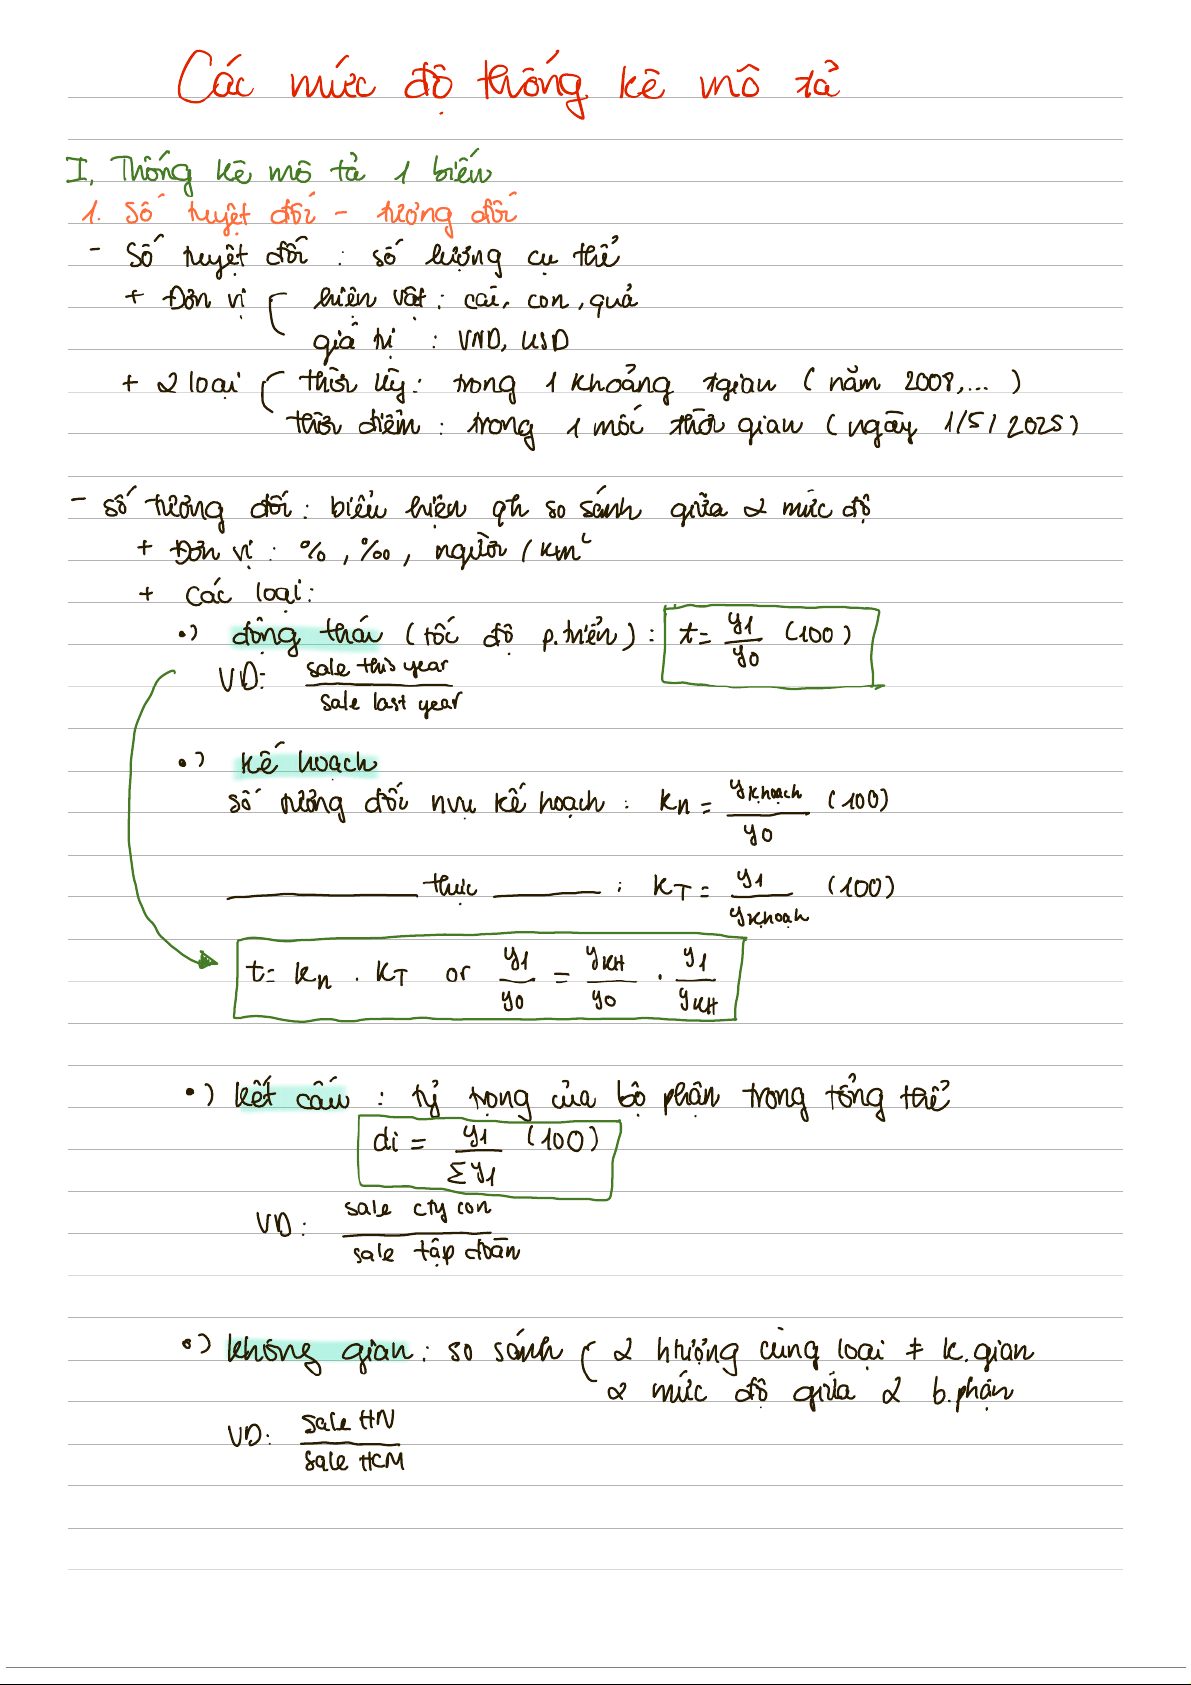 Các mức độ thống kê mô tả
I, Thống kê mô tả 1 biến
1. Số tuyệt đối - tương đối
- Số tuyệt đối : số lượng cụ thể
+ Đơn vị { hiện vật : cái, con, quả
giá trị : VND, USD
+ 2 loại { thời kỳ : trong 1 khoảng tgian ( năm 2008,... )
thời điểm : trong 1 mốc thời gian ( ngày 1/5/2025)
- số tương đối : biểu hiện qh so sánh giữa 2 mức độ
+ Đơn vị : % , ‰ , người / km²
+ Các loại :
•) động thái ( tốc độ p.triển ) : t = y1 / y0 (100)
VD: sale this year / sale last year
•) kế hoạch
số tương đối nvụ kế hoạch : Kn = ykhoạch / y0 (100)
_____ thực _____ : KT = y1 / ykhoạch (100)
t = Kn . KT or y1 / y0 = yKH / y0 . y1 / yKH
•) kết cấu : tỷ trọng của bộ phận trong tổng thể
di = y1 / Σy1 (100)
VD : sale cty con / sale tập đoàn
•) không gian : so sánh { 2 htượng cùng loại ≠ k.gian
2 mức độ giữa 2 b.phận
VD: sale HN / sale HCM